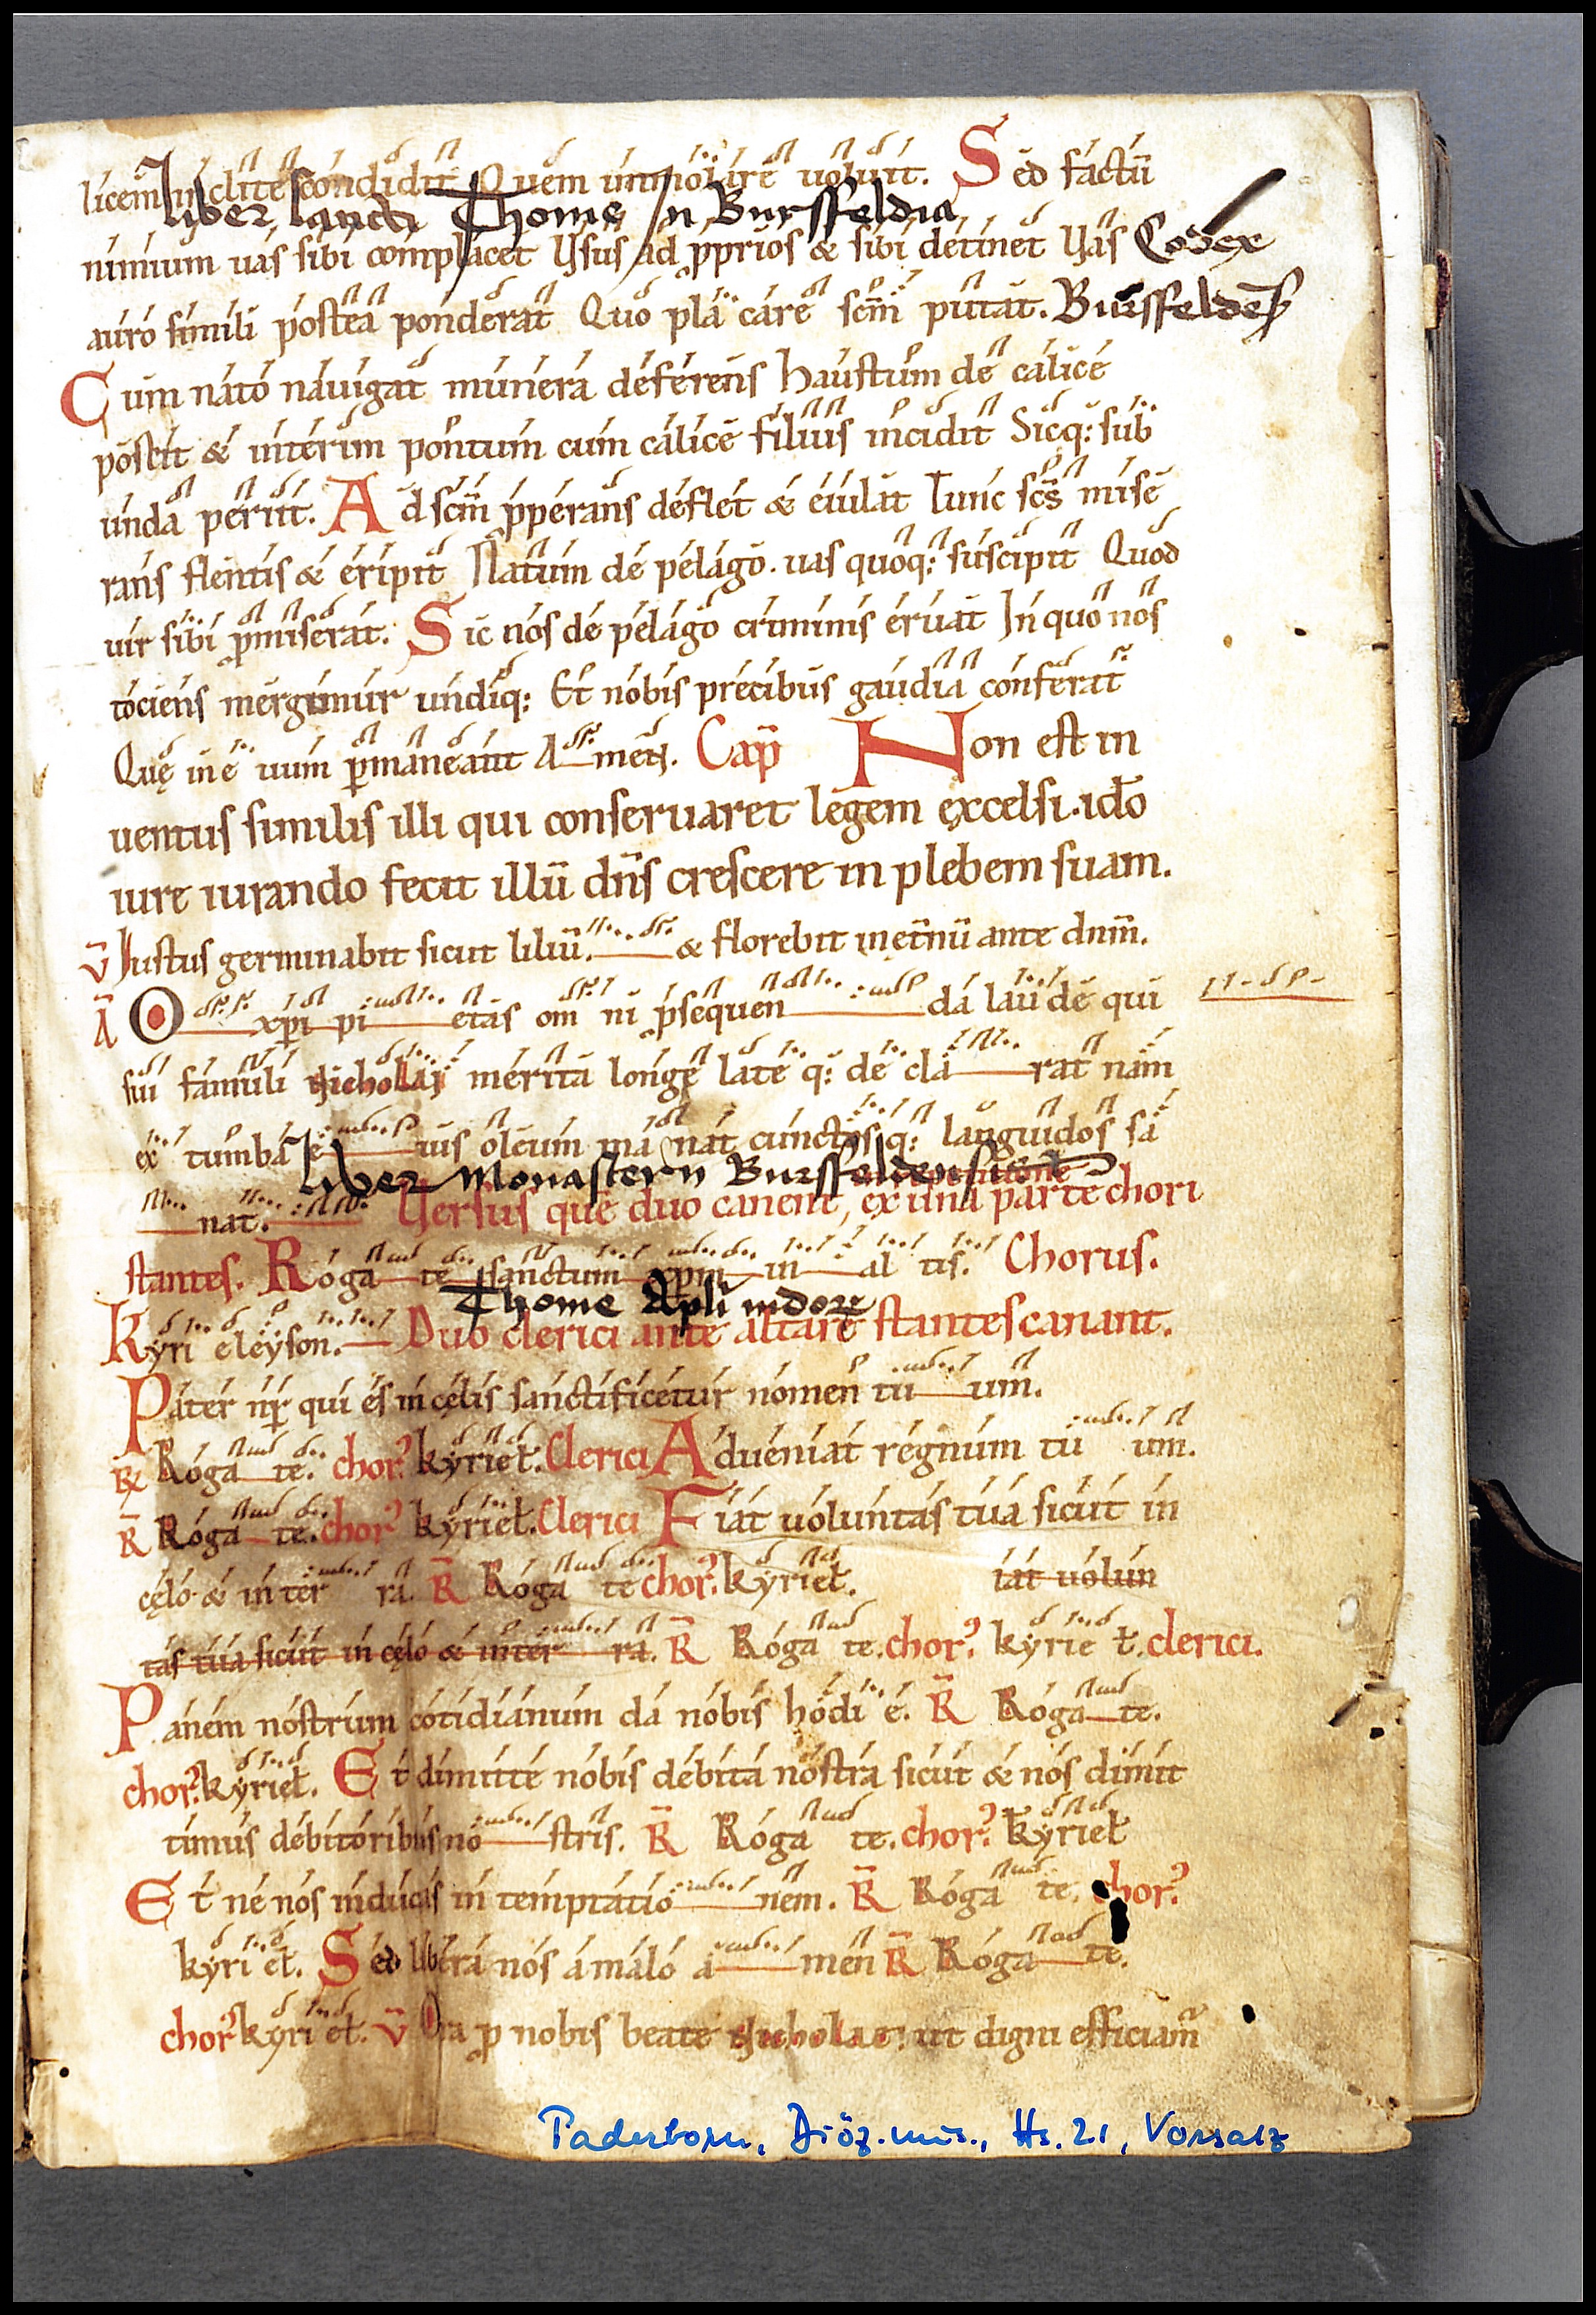 licem inclite condidit Quem immolare uoluit. Sed factū
liber sancti Thome in Bursffeldia
nimium uas sibi complacet Vsus ad pprios & sibi detinet Vas Codex
auro simili postea ponderat Quo placare scm̄ putat. Bursffeldeñ
Cum nato nauigat munera deferens haustum de calice
poscit & interim pontum cum calice filius incidit Sicq: sub
unda periit. Ad scm̄ pperans deflet & eiulat Tunc scs̄ mise
rans flentis & eripit Natum de pelago. uas quoq: suscipit Quod
uir sibi pmiserat. Sic nos de pelago criminis eruat In quo nos
tociens mergimur undiq: Et nobis precibus gaudia conferat
Quę in e uum pmaneant A men. Cap̄ Non est in
uentus similis illi qui conseruaret legem excelsi. ido
iure iurando fecit illū dn̄s crescere in plebem suam.
v̄ Iustus germinabit sicut liliū. & florebit inet̄nū ante dnm̄.
Ā O xp̄i pi etas om ni p̄sequen da laude qui
sui famuli Nicholai merita longe late q: de cla rat nam
ex tumba e ius oleum ma nat cunctosq: languidos sa
liber Monasterij Bursffeldensis
nat. Versus quē duo canent, ex una parte chori
stantes. Roga te sanctum xp̄m in al tis. Chorus.
Thome Apl̄i
Kyri eleyson. Duo clerici ante altare stantes canant.
Pater nr̄ qui es in cęlis sanctificetur nomen tu um.
R̄ Roga te. chor⁹ kyrieł. Clerici Adueniat regnum tu um.
R̄ Roga te. chor⁹ kyrieł. Clerici Fiat uoluntas tua sicut in
cęlo & in ter ra. R̄ Roga te chor⁹. kyrieł. iat uolun
tas tua sicut in cęlo & inter ra. R̄ Roga te. chor⁹ kyrie ł. clerici.
Panem nostrum cotidianum da nobis hodi e. R̄ Roga te.
chor⁹. kyrieł. Et dimitte nobis debita nostra sicut & nos dimit
timus debitoribus no stris. R̄ Roga te. chor⁹. kyrieł
Et ne nos inducas in temptatio nem. R̄ Roga te. chor⁹
kyri eł. Sed libera nos a malo a men R̄ Roga te.
chor⁹ kyri eł. v̄ Ora p nobis beate Nicholae: ut digni efficiam̄
Paderborn, Diöz.mus., Hs. 21, Vorsatz